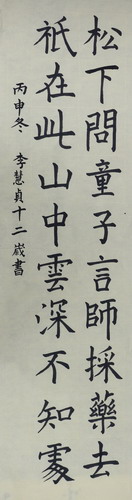 松下問童子言師採藥去
祇在此山中雲深不知處
丙申冬 李慧貞十二歲書